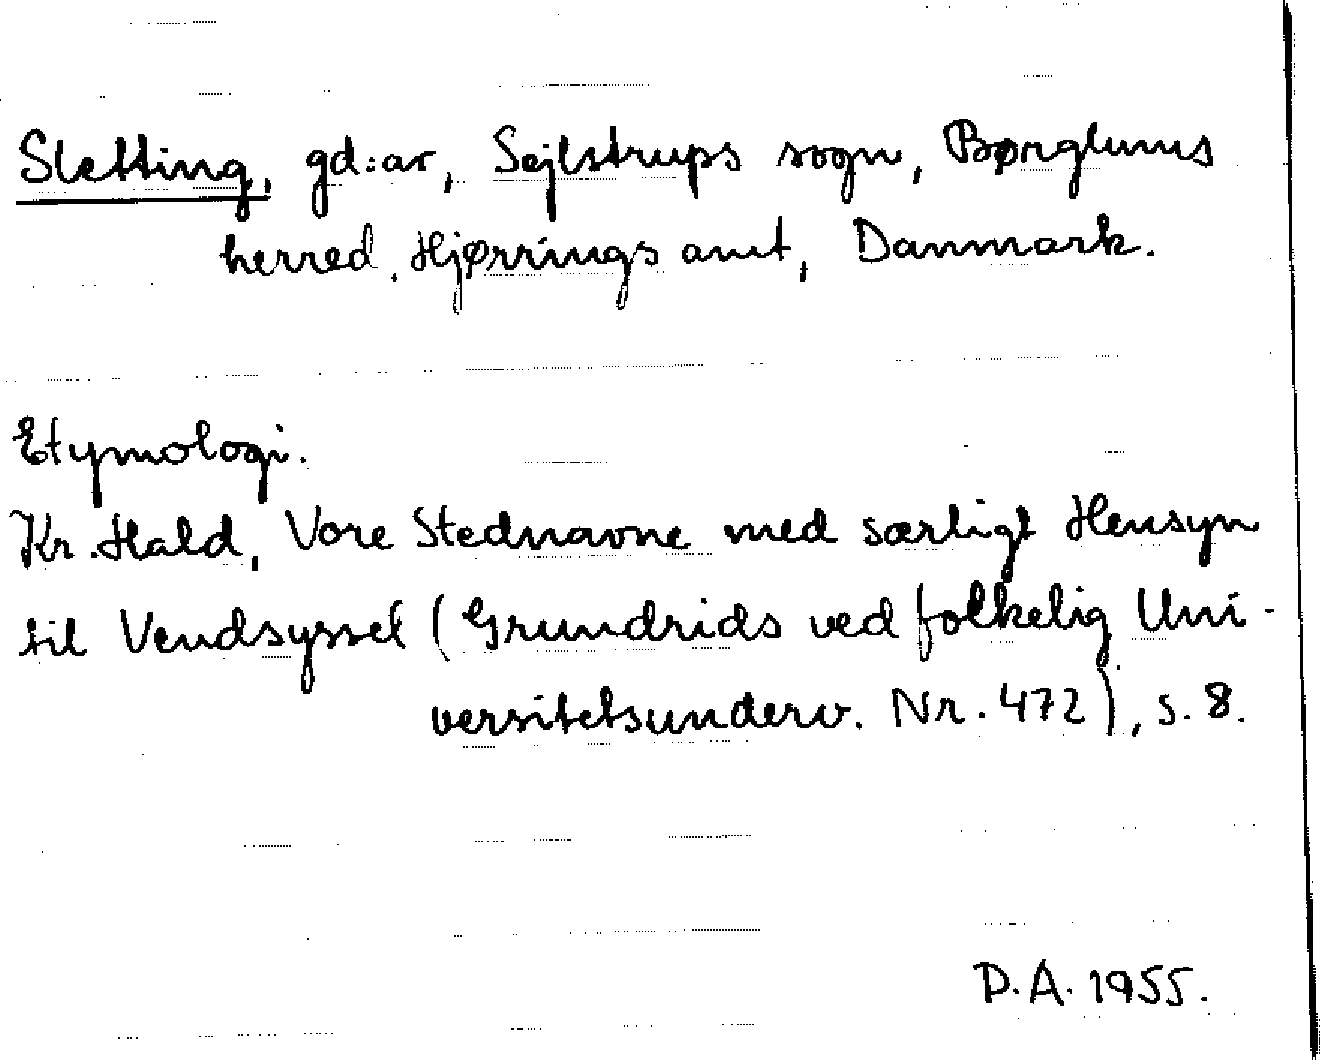 Sletting, gd:ar, Sejlstrups sogn, Børglums
herred, Hjørrings amt, Danmark.
Etymologi.
Kr. Hald, Vore Stednavne med særligt Hensyn
til Vendsyssel (Grundrids ved folkelig Uni-
versitetsunderv. Nr. 472), s. 8.
D.A. 1955.